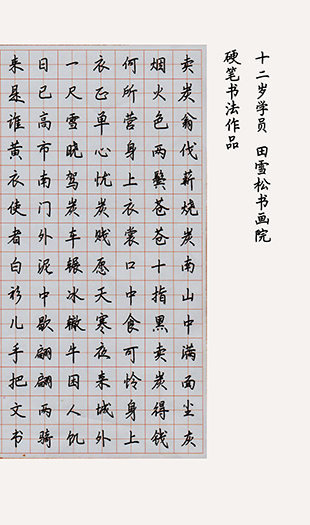 十二岁学员 田雪松书画院
硬笔书法作品
卖炭翁伐薪烧炭南山中满面尘灰
烟火色两鬓苍苍十指黑卖炭得钱
何所营身上衣裳口中食可怜身上
衣正单心忧炭贱愿天寒夜来城外
一尺雪晓驾炭车辗冰辙牛困人饥
日已高市南门外泥中歇翩翩两骑
来是谁黄衣使者白衫儿手把文书